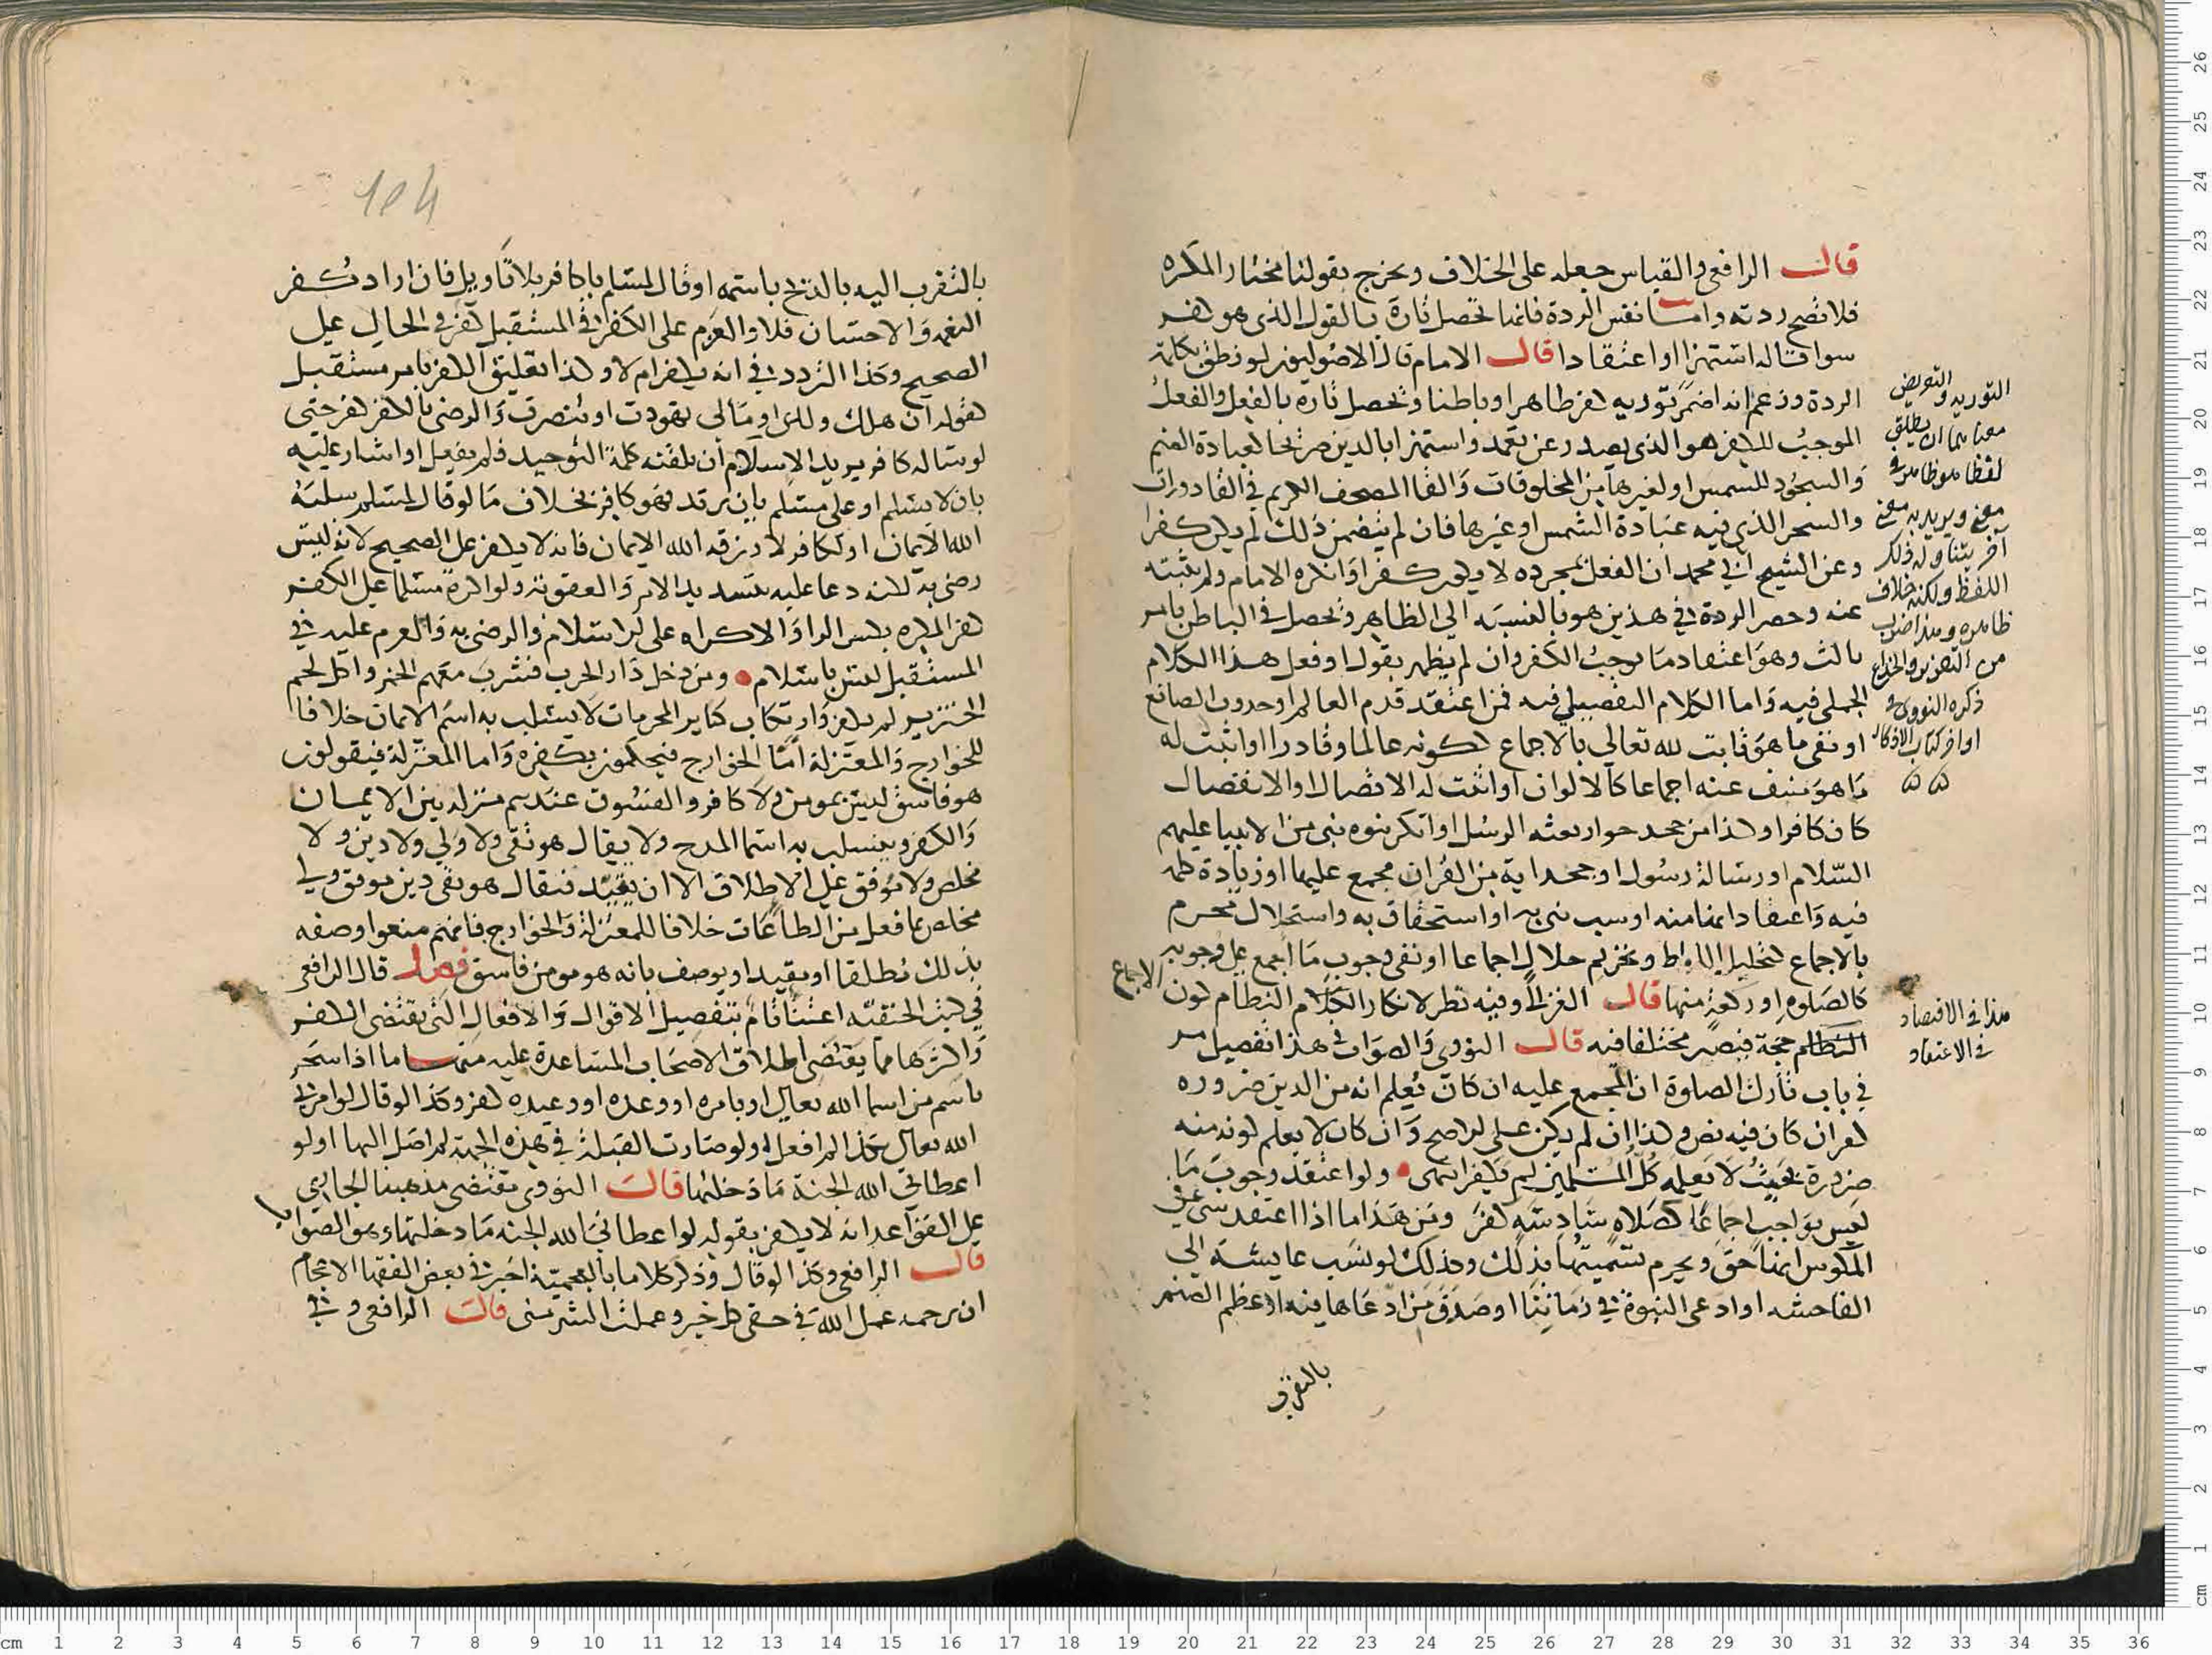 قال الرافعي والقياس جعله على الخلاف ويخرج بقولنا مختار المكره
فلا تصح ردته واما نفس الردة فانها تحصل تارة بالقول الذي هو كفر
سوا قاله استهزا او اعتقادا قال الامام قال الاصوليون لو نطق بكلمة
الردة وزعم انه اضمر تورية كفر ظاهرا وباطنا وتحصل تارة بالفعل والفعل
الموجب للكفر هو الذي يصدر عن تعمد واستهزا بالدين صريحا كعبادة الصنم
والسجود للشمس او لغيرها من المخلوقات والقا المصحف الكريم في القاذورات
والسحر الذي فيه عبادة الشمس او غيرها فان لم يتضمن ذلك لم يكن كفرا
وعن الشيخ ابي محمد ان الفعل بمجرده لا يكون كفرا وانكره الامام ولم يثبته
عنه وحصر الردة في هذين هو بالنسبة الى الظاهر وتحصل في الباطن بامر
ثالث وهو اعتقاد ما يوجب الكفر وان لم يظهر بقول او فعل هذا الكلام
الجملي فيه واما الكلام التفصيلي فيه فمن اعتقد قدم العالم او حدوث الصانع
او نفى ما هو ثابت لله تعالى بالاجماع ككونه عالما وقادرا او اثبت له
ما هو منتف عنه اجماعا كالالوان او اثبت له الاتصال او الانفصال
كان كافرا وكذا من جحد جواز بعثه الرسل او انكر نبوه نبي من الانبيا عليهم
السلام او رسالة رسول او جحد اية من القران مجمع عليها او زيادة كلمة
فيه واعتقادا انها منه او سب نبي به او استخفاف به واستحلال محرم
بالاجماع كتحليل اللواط وتحريم حلال اجماعا او نفي وجوب ما اجمع على وجوبه
كالصلوه او ركعة منها قال الغزالي وفيه نظر لانكار النظام كون الاجماع
حجة فيصير مختلفا فيه قال النووي والصواب في هذا تفصيل مر
في باب تارك الصلوة ان المجمع عليه ان كان يعلم انه من الدين ضروره
كفر ان كان فيه نص وكذا ان لم يكن على الاصح وان كان لا يعلم كونه منه
ضرورة بحيث لا يعلمه كل المسلمين لم يكفر انتهى ولو اعتقد وجوب ما
ليس بواجب اجماعا كصلاه سادسه كفر ومن هذا ما اذا اعتقد شي في
المكوس انها حق ويحرم تسميتها بذلك وكذلك لو نسب عايشه الى
الفاحشه او ادعى النبوة في زماننا او صدق من ادعاها فيه او عظم الصنم
بالتقرب
التورية والتعريض
معناهما ان يطلق
لفظا هو ظاهر في
معنى ويريد به معنى
اخر يتناوله ذلك
اللفظ ولكنه خلاف
ظاهره وهذا ضرب
من التغرير والخداع
ذكره النووي في
اواخر كتاب الاذكار
هذا في الاقتصاد
في الاعتقاد
بالتقرب اليه بالذبح باسمه او قال لمسلم يا كافر بلا تاويل فان اراد كفر
النعمة والاحسان فلا والعزم على الكفر في المستقبل كفر في الحال على
الصحيح وكذا التردد في انه يكفر ام لا وكذا تعليق الكفر بامر مستقبل
كقوله ان هلك ولدي او مالي تهودت او تنصرت والرضى بالكفر كفر حتى
لو ساله كافر يريد الاسلام ان يلقنه كلمة التوحيد فلم يفعل او اشار عليه
بان لا يسلم او على مسلم بان يرتد فهو كافر بخلاف ما لو قال لمسلم سلبه
الله الايمان او لكافر لا رزقه الله الايمان فانه لا يكفر على الصحيح لانه ليس
رضى به لكنه دعا عليه بتشديد الامر والعقوبة ولو اكره مسلما على الكفر
كفر المكره بكسر الرا والاكراه على الاسلام والرضى به والعزم عليه في
المستقبل ليس باسلام ومن دخل دار الحرب فشرب معهم الخمر واكل لحم
الخنزير لم يكفر وارتكاب كباير المحرمات لا يسلب به اسم الايمان خلافا
للخوارج والمعتزلة اما الخوارج فيحكمون بكفره واما المعتزلة فيقولون
هو فاسق ليس بمومن ولا كافر والفسوق عندهم منزله بين الايمان
والكفر وينسلب به اسما المدح ولا يقال هو تقي ولا ولي ولا دين ولا
مخلص ولا موفق على الاطلاق الا ان يقيد فيقال هو تقي دين موفق ولي
مخلص بما فعل من الطاعات خلافا للمعتزلة والخوارج فانهم منعوا وصفه
بذلك مطلقا او مقيدا ويوصف بانه هو مومن فاسق فصل قال الرافعي
في كتب الحنفية اعتنا تام بتفصيل الاقوال والافعال التي تقتضى الكفر
واكثرها مما يقتضى اطلاق الاصحاب المساعدة عليه منها ما اذا سخر
باسم من اسما الله تعالى او بامره او وعده او وعيده كفر وكذا لو قال لو امرني
الله تعالى بكذا لم افعل او لو صارت القبلة في هذه الجهة لم اصل اليها او لو
اعطاني الله الجنة ما دخلتها قالت النووي مقتضى مذهبنا الجاري
على القواعد انه لا يكفر بقوله لو اعطاني الله الجنة ما دخلتها وهو الصواب
قال الرافعي وكذا لو قال وذكر كلاما بالعجمية اخبرني بعض الفقها الاعجام
ان ترجمه عمل الله في حقي كل خير وعملت الشر مني قالت الرافعي وفي